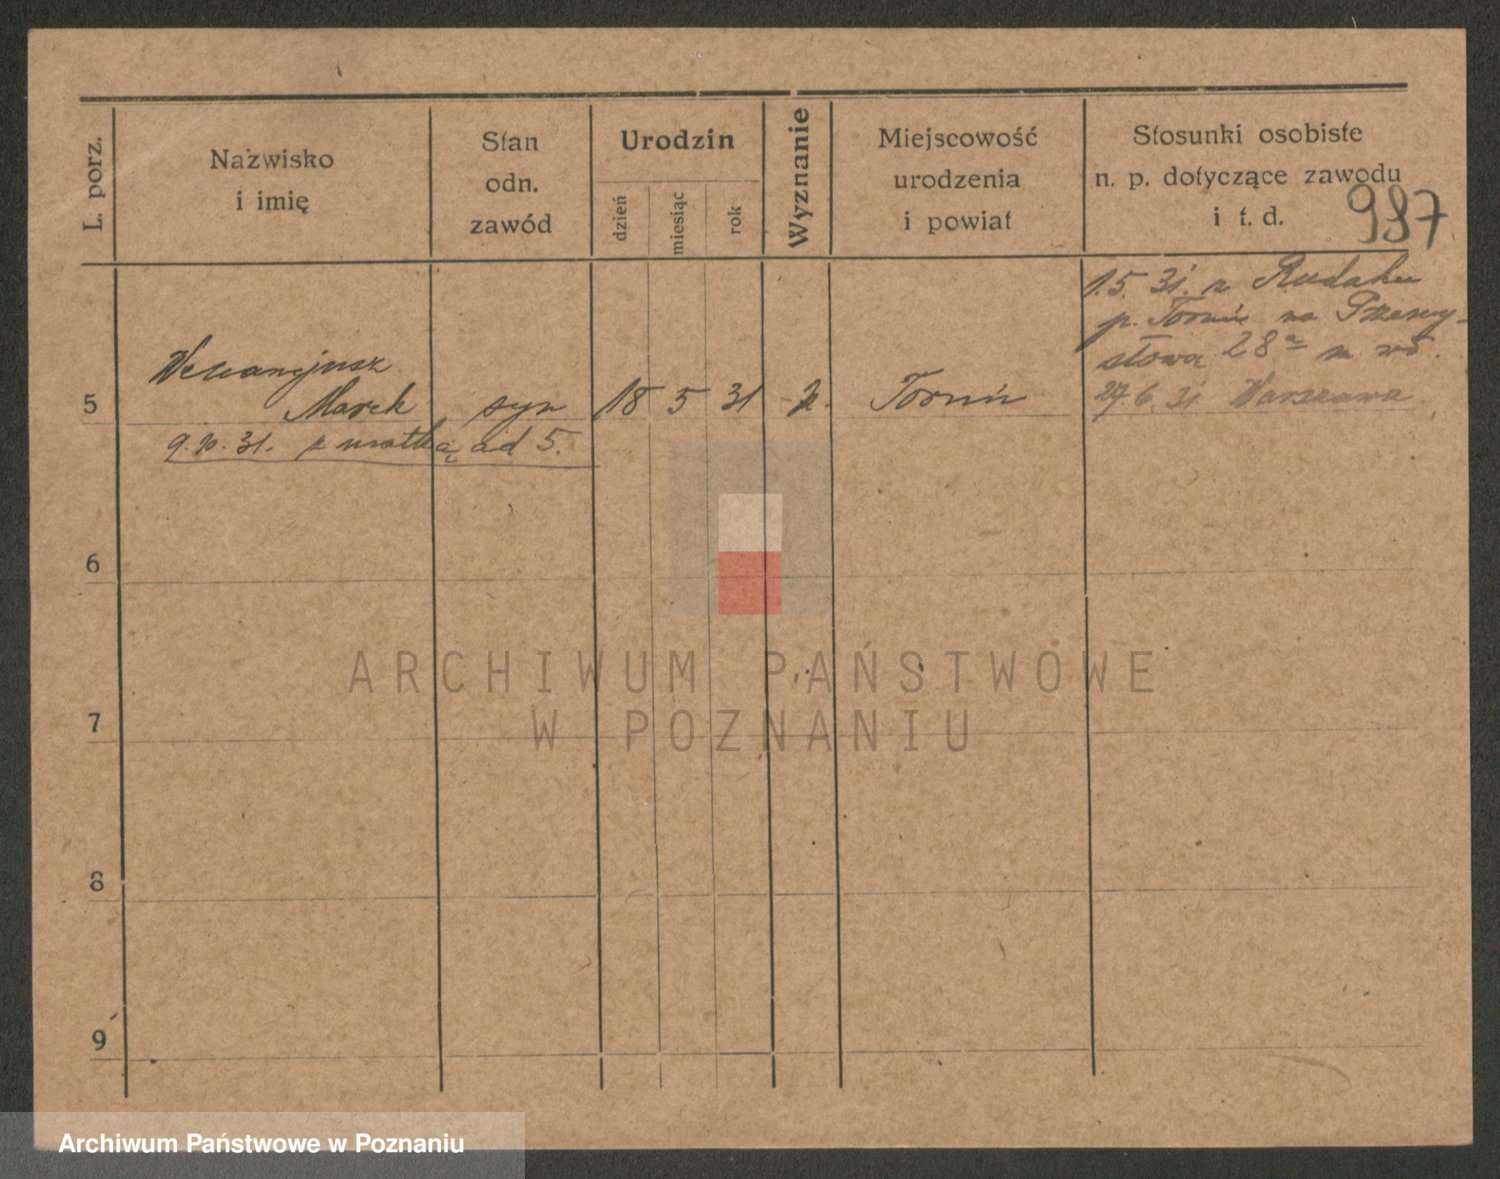 L. porz.
Nazwisko
i imię
Stan
odn.
zawód
Urodzin
dzień
miesiąc
rok
Wyznanie
Miejscowość
urodzenia
i powiat
Stosunki osobiste
n. p. dotyczące zawodu
i t. d.
987
1.5. 31. z Rudaku
p. Toruń na Przemy-
słowa 28a m.
27.6.31. Warszawa
5
Marek syn 18 5 31 Toruń
9.10.31. z matką ad 5.
6
7
8
9
ARCHIWUM PAŃSTWOWE
W POZNANIU
Archiwum Państwowe w Poznaniu